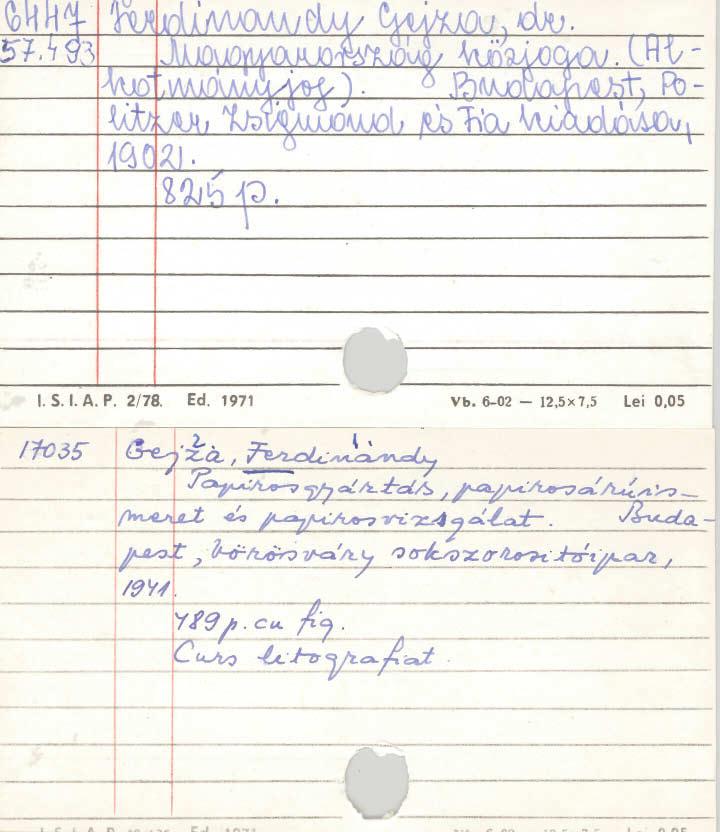 6447 Ferdinandy Gejza, dr.
57.493 Magyarország közjoga. (Al-
kotmányjog). Budapest, Po-
litzer Zsigmond és Fia kiadása,
1902.
825 p.
I. S. I. A. P. 2/78. Ed. 1971 Vb. 6-02 — 12,5×7,5 Lei 0,05
2 1
17035 Gejza, Ferdinándy
Papirosgyártás, papirosáruis-
meret és papirosvizsgálat. Buda-
pest, Vörösváry sokszorositóipar,
1941.
789 p. cu fig.
Curs litografiat.